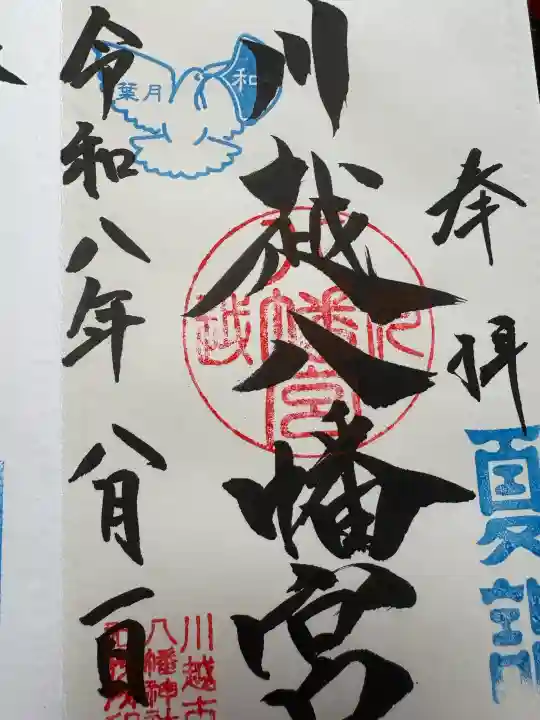 奉拝
夏詣
川越八幡宮
令和八年八月一日
葉月
和
川越市
八幡神社